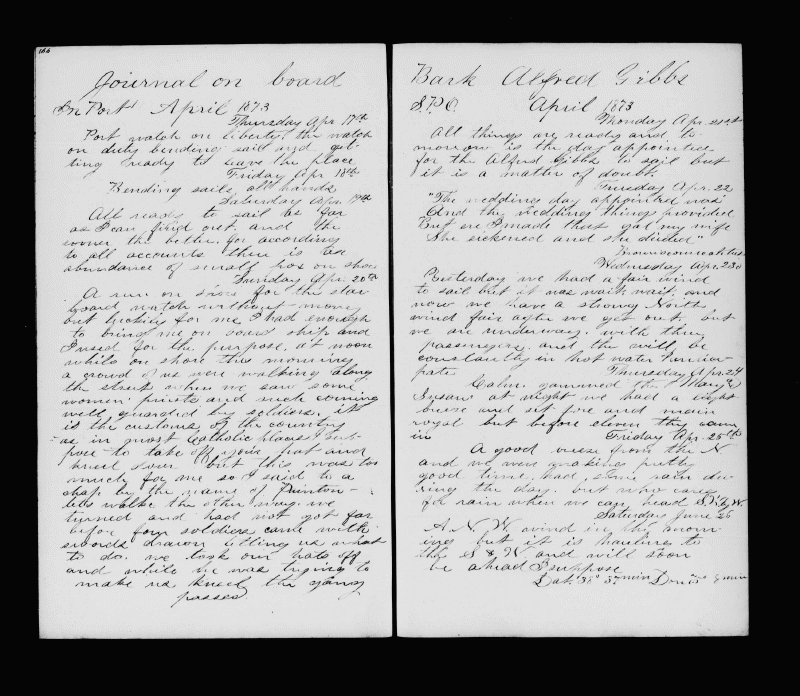 166
Journal on board
In Port April 1873
Thursday Apr 17th
Port watch on liberty the watch
on duty bending sail and get-
ting ready to leave the place
Friday Apr 18th
Bending sails, all hands
Saturday Apr. 19th
All ready to sail as far
as I can find out, and the
sooner the better for according
to all accounts there is an
abundance of small pox on shore
Sunday Apr. 20th
A run on shore for the star
board watch without money
but lucky for me I had enough
to bring me on board ship and
I used for the purpose, at noon
while on shore this morning
a crowd of us were walking along
the street when we saw some
women priests and such coming
well guarded by soldiers. it
is the customs of the country
as in most Catholic places
to take off your hat and
kneel down but this was too
much for me so I said to a
chap by the name of
lets walk the other way. we
turned and had not got far
before four soldiers came with
swords drawn telling us what
to do. we took our hats off
and while he was trying to
make us kneel the gang
passes
Bark Alfred Gibbs
April 1873
Monday Apr 21st
All things are ready and to
morrow is the day appointed
for the Alfred Gibbs to sail but
it is a matter of doubt.
Tuesday Apr. 22
"The wedding day appointed was
And the wedding things provided
But ere I made that gal my wife
She sickened and she dieded"
Wednesday Apr. 23d
Yesterday we had a fair wind
to sail but it was wait, wait, and
now we have a strong North
wind fair after we get out, but
we are underway. with three
passengers. and the will be
constantly in hot water I
pate
Thursday Apr. 24
Calm. gammed the Mary &
Susan at night we had a light
breeze and set fore and main
royal but before eleven they came
in
Friday Apr. 25th
A good breeze from the N
and we were making pretty
good time had some rain du-
ring the day. but who cares
for rain when we can head
Saturday June 26
A N. W wind in the morn-
ing but it is hauling to
the S & W and will soon
be ahead I suppose
Lat. 38° 37 min